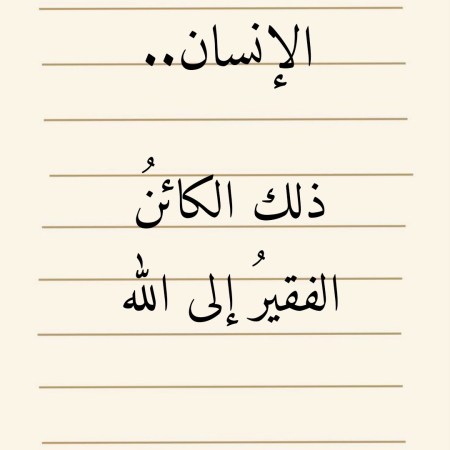 الإنسان..
ذلك الكائنُ
الفقيرُ إلى الله